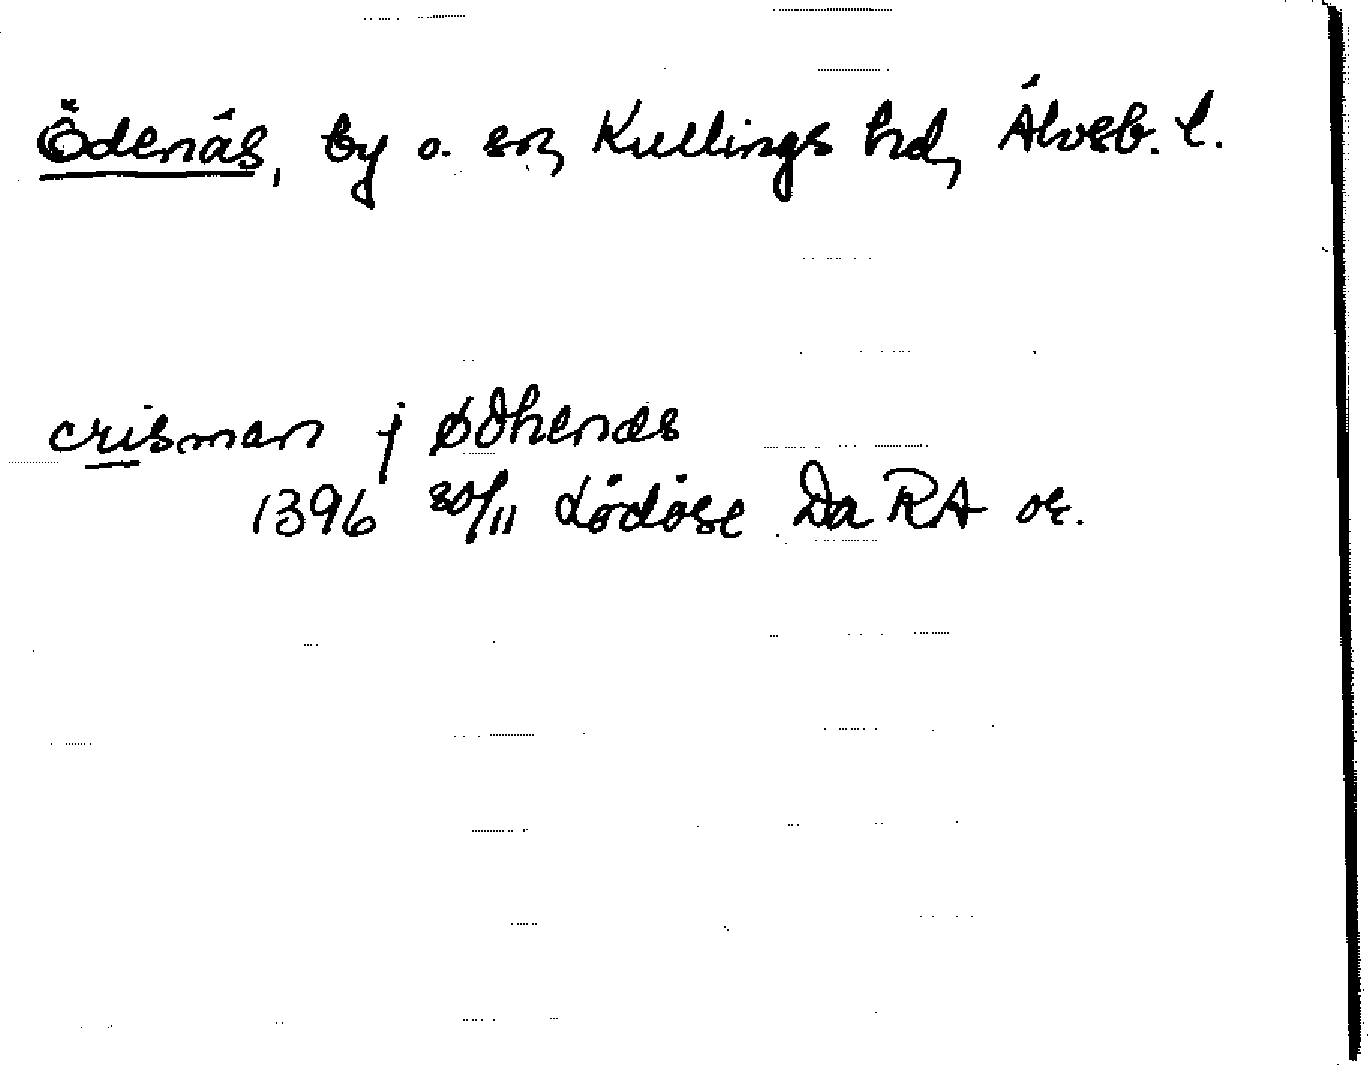 Ödenäs, by o. sn, Kullings hd, Älvsb. l.
crisman j ØDhenæs
1396 20/11 Lödöse Da RA or.